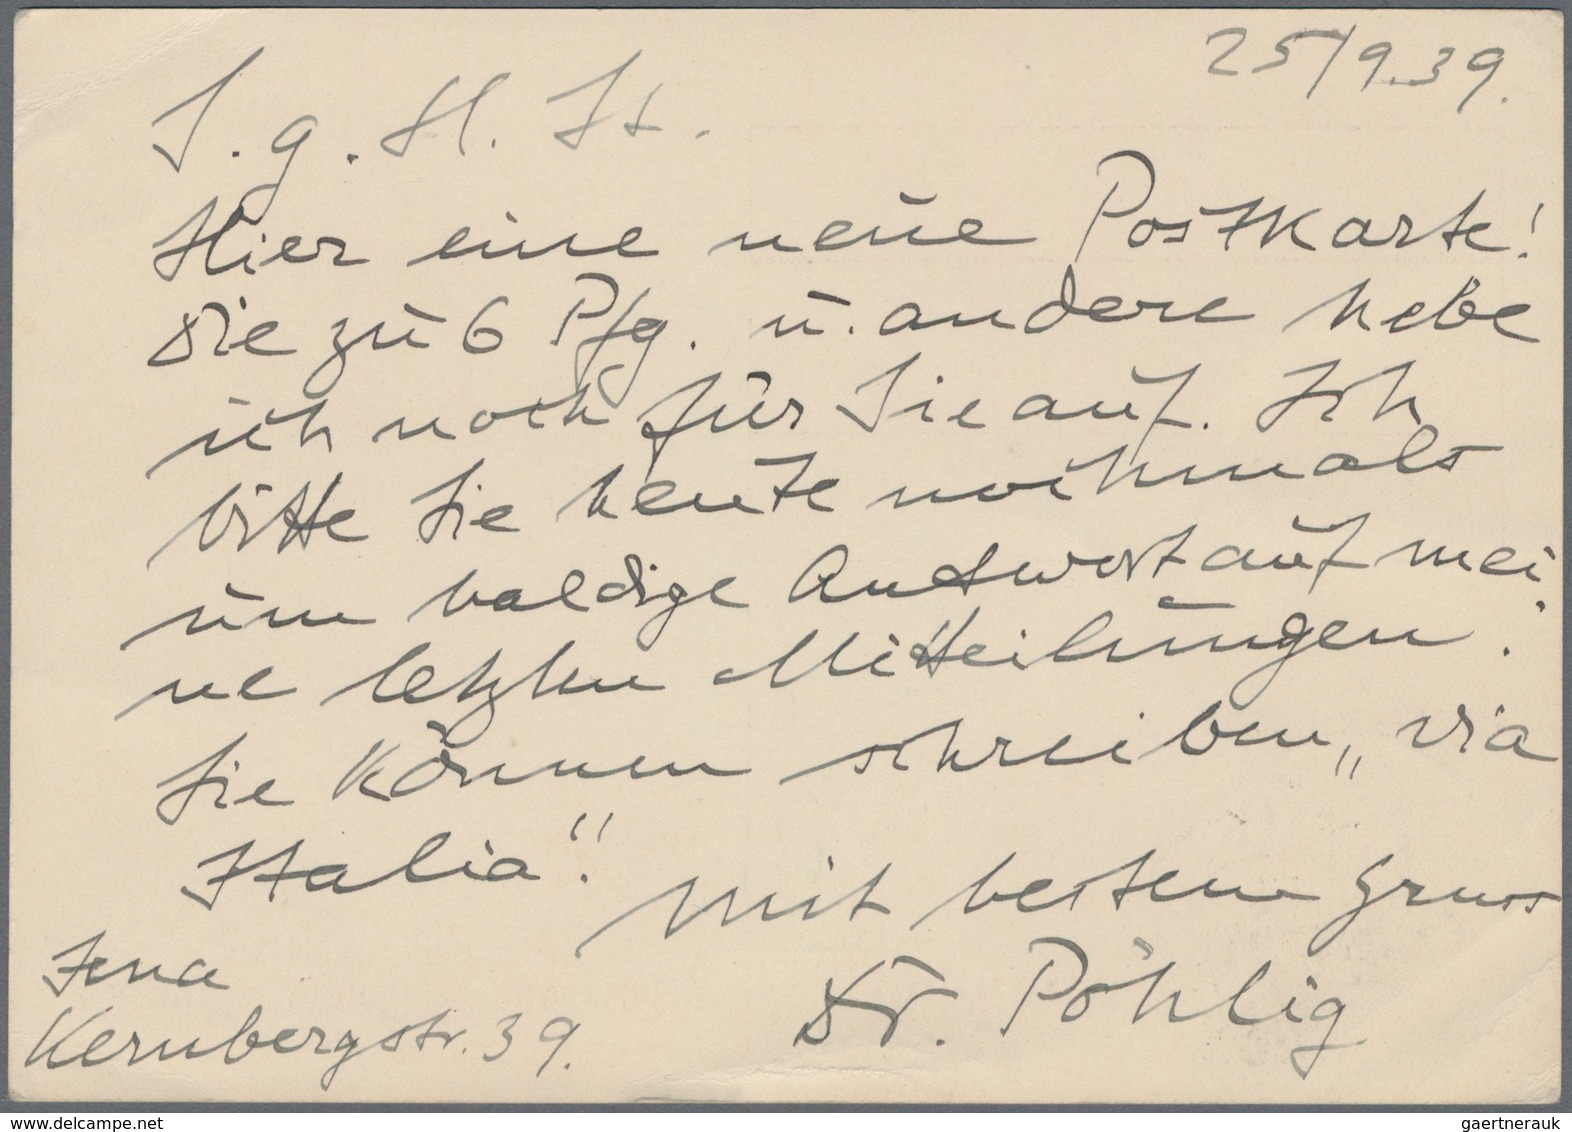 25/9.39.
S. g. H. St.
Hier eine neue Postkarte!
Die zu 6 Pfg. u. andere hebe
ich noch für Sie auf. Ich
bitte Sie heute nochmals
um baldige Antwort auf mei-
ne letzten Mitteilungen.
Sie können schreiben „via
Italia“!
Mit bestem Gruss
Dr. Pöhlig
Jena
Kernbergstr. 39.
www.delcampe.net
gaertnerauk